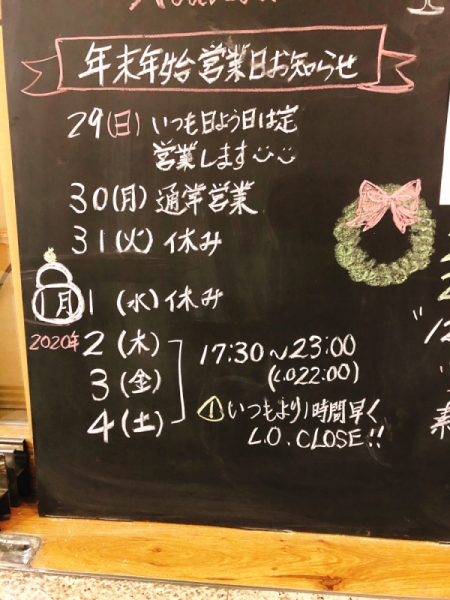 年末年始営業日お知らせ
29(日) いつも日よう日は定
営業します
30(月) 通常営業
31(火) 休み
1月1 (水) 休み
2020年 2 (木)
3 (金)
4 (土)
17:30~23:00
(L.O22:00)
いつもより1時間早く
L.O. CLOSE!!